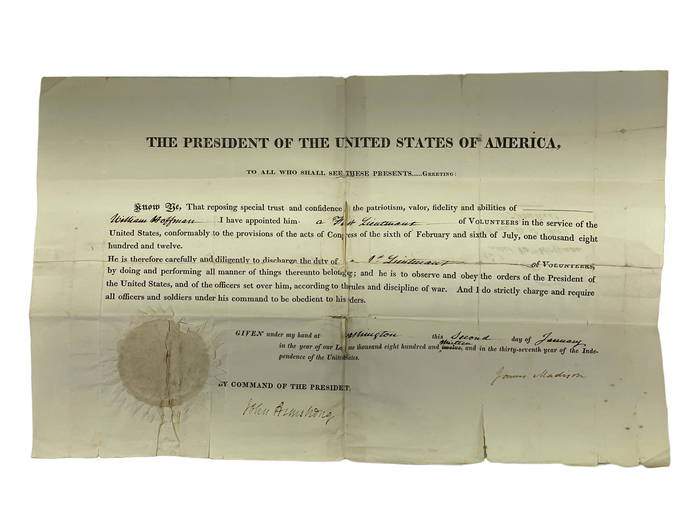 THE PRESIDENT OF THE UNITED STATES OF AMERICA,
TO ALL WHO SHALL SEE THESE PRESENTS.....GREETING:
Know Ye, That reposing special trust and confidence the patriotism, valor, fidelity and abilities of
William Hoffman I have appointed him a First Lieutenant of VOLUNTEERS in the service of the
United States, conformably to the provisions of the acts of Congress of the sixth of February and sixth of July, one thousand eight
hundred and twelve.
He is therefore carefully and diligently to discharge the duty of a 1st Lieutenant of VOLUNTEERS,
by doing and performing all manner of things thereunto belonging; and he is to observe and obey the orders of the President of
the United States, and of the officers set over him, according to the rules and discipline of war. And I do strictly charge and require
all officers and soldiers under his command to be obedient to his ders.
GIVEN under my hand at shington this Second day of January
in the year of our Lo thousand eight hundred and thirteen, and in the thirty-seventh year of the Inde-
pendence of the United States.
BY COMMAND OF THE PRESIDET,
James Madison
John Armstrong